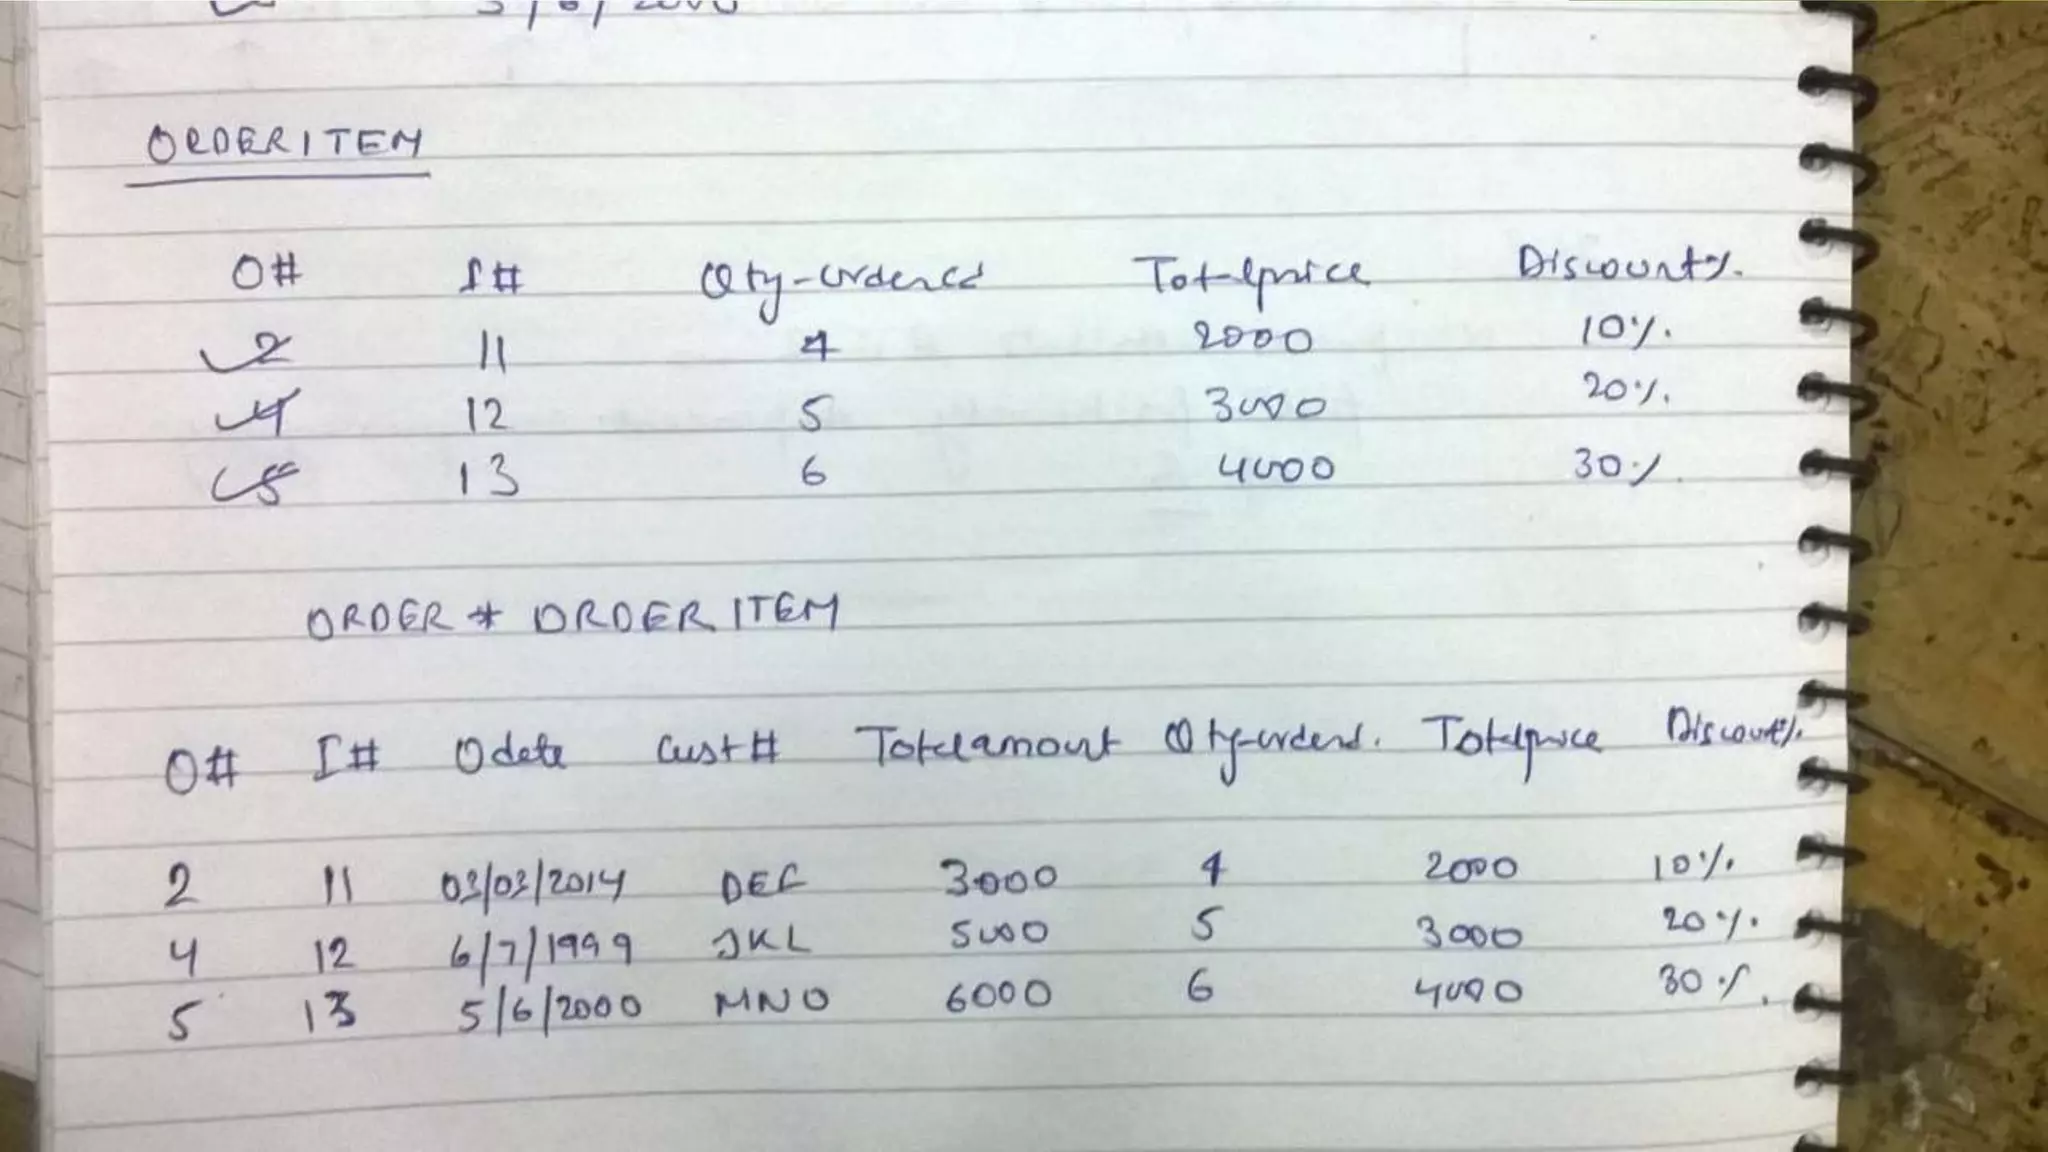 5/6/2000
ORDERITEM
O# I# Qty-ordered Totalprice Discount%.
2 11 4 2000 10%.
4 12 5 3000 20%.
5 13 6 4000 30%.
ORDER * ORDERITEM
O# I# Odate Cust# Totalamount Qty-ordered. Totalprice Discount%.
2 11 03/03/2014 DEF 3000 4 2000 10%.
4 12 6/7/1999 JKL 5000 5 3000 20%.
5 13 5/6/2000 MNO 6000 6 4000 30%.